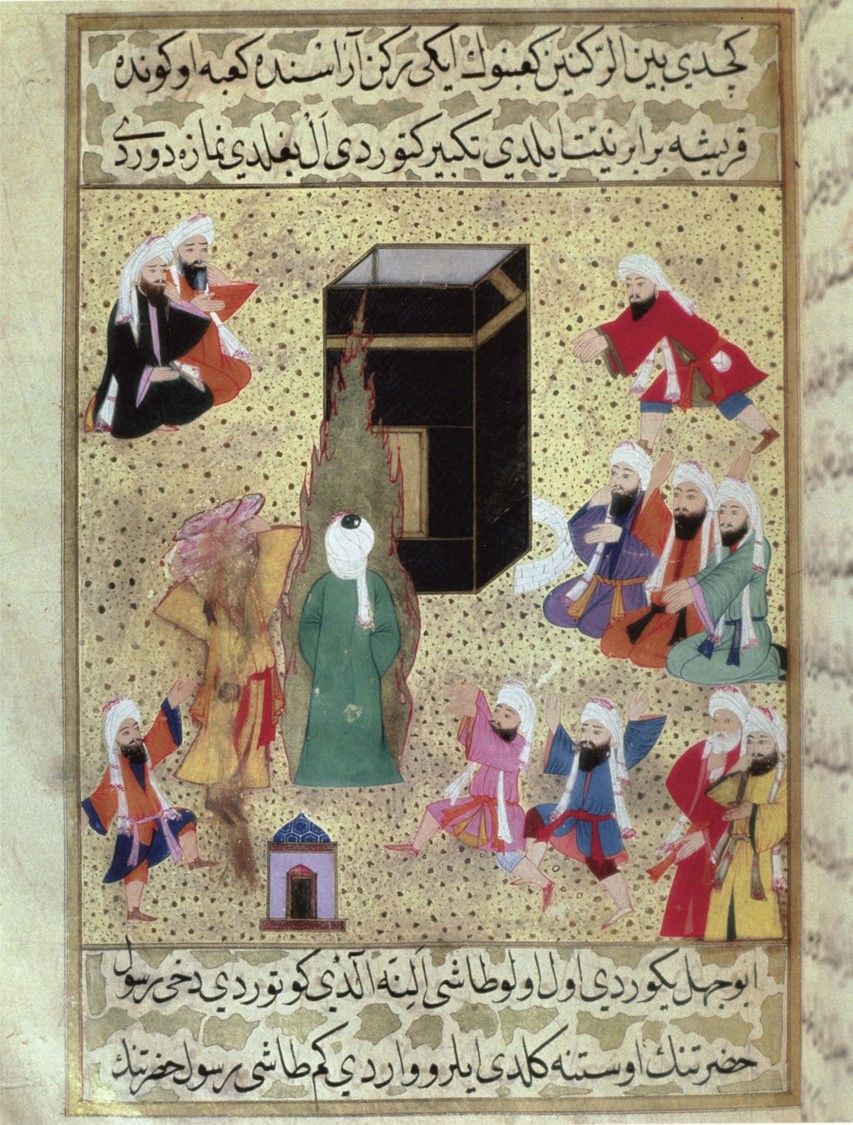 كچدی بين الرّكنين كعبنوك ايكی ركن آراسنده كعبه اوكونده
قريشه برابر نيّت ايلدی تكبير كتوردی اَلْ بغلدی نمازه دوردی
ابوجهل يكوردی اول اولو طاشی اَلِنَه اَلْدی كوتوردی دخی رسول
حضرتنك اوستنه كلدی ايلرو واردی كم طاشی رسول حضرتنك